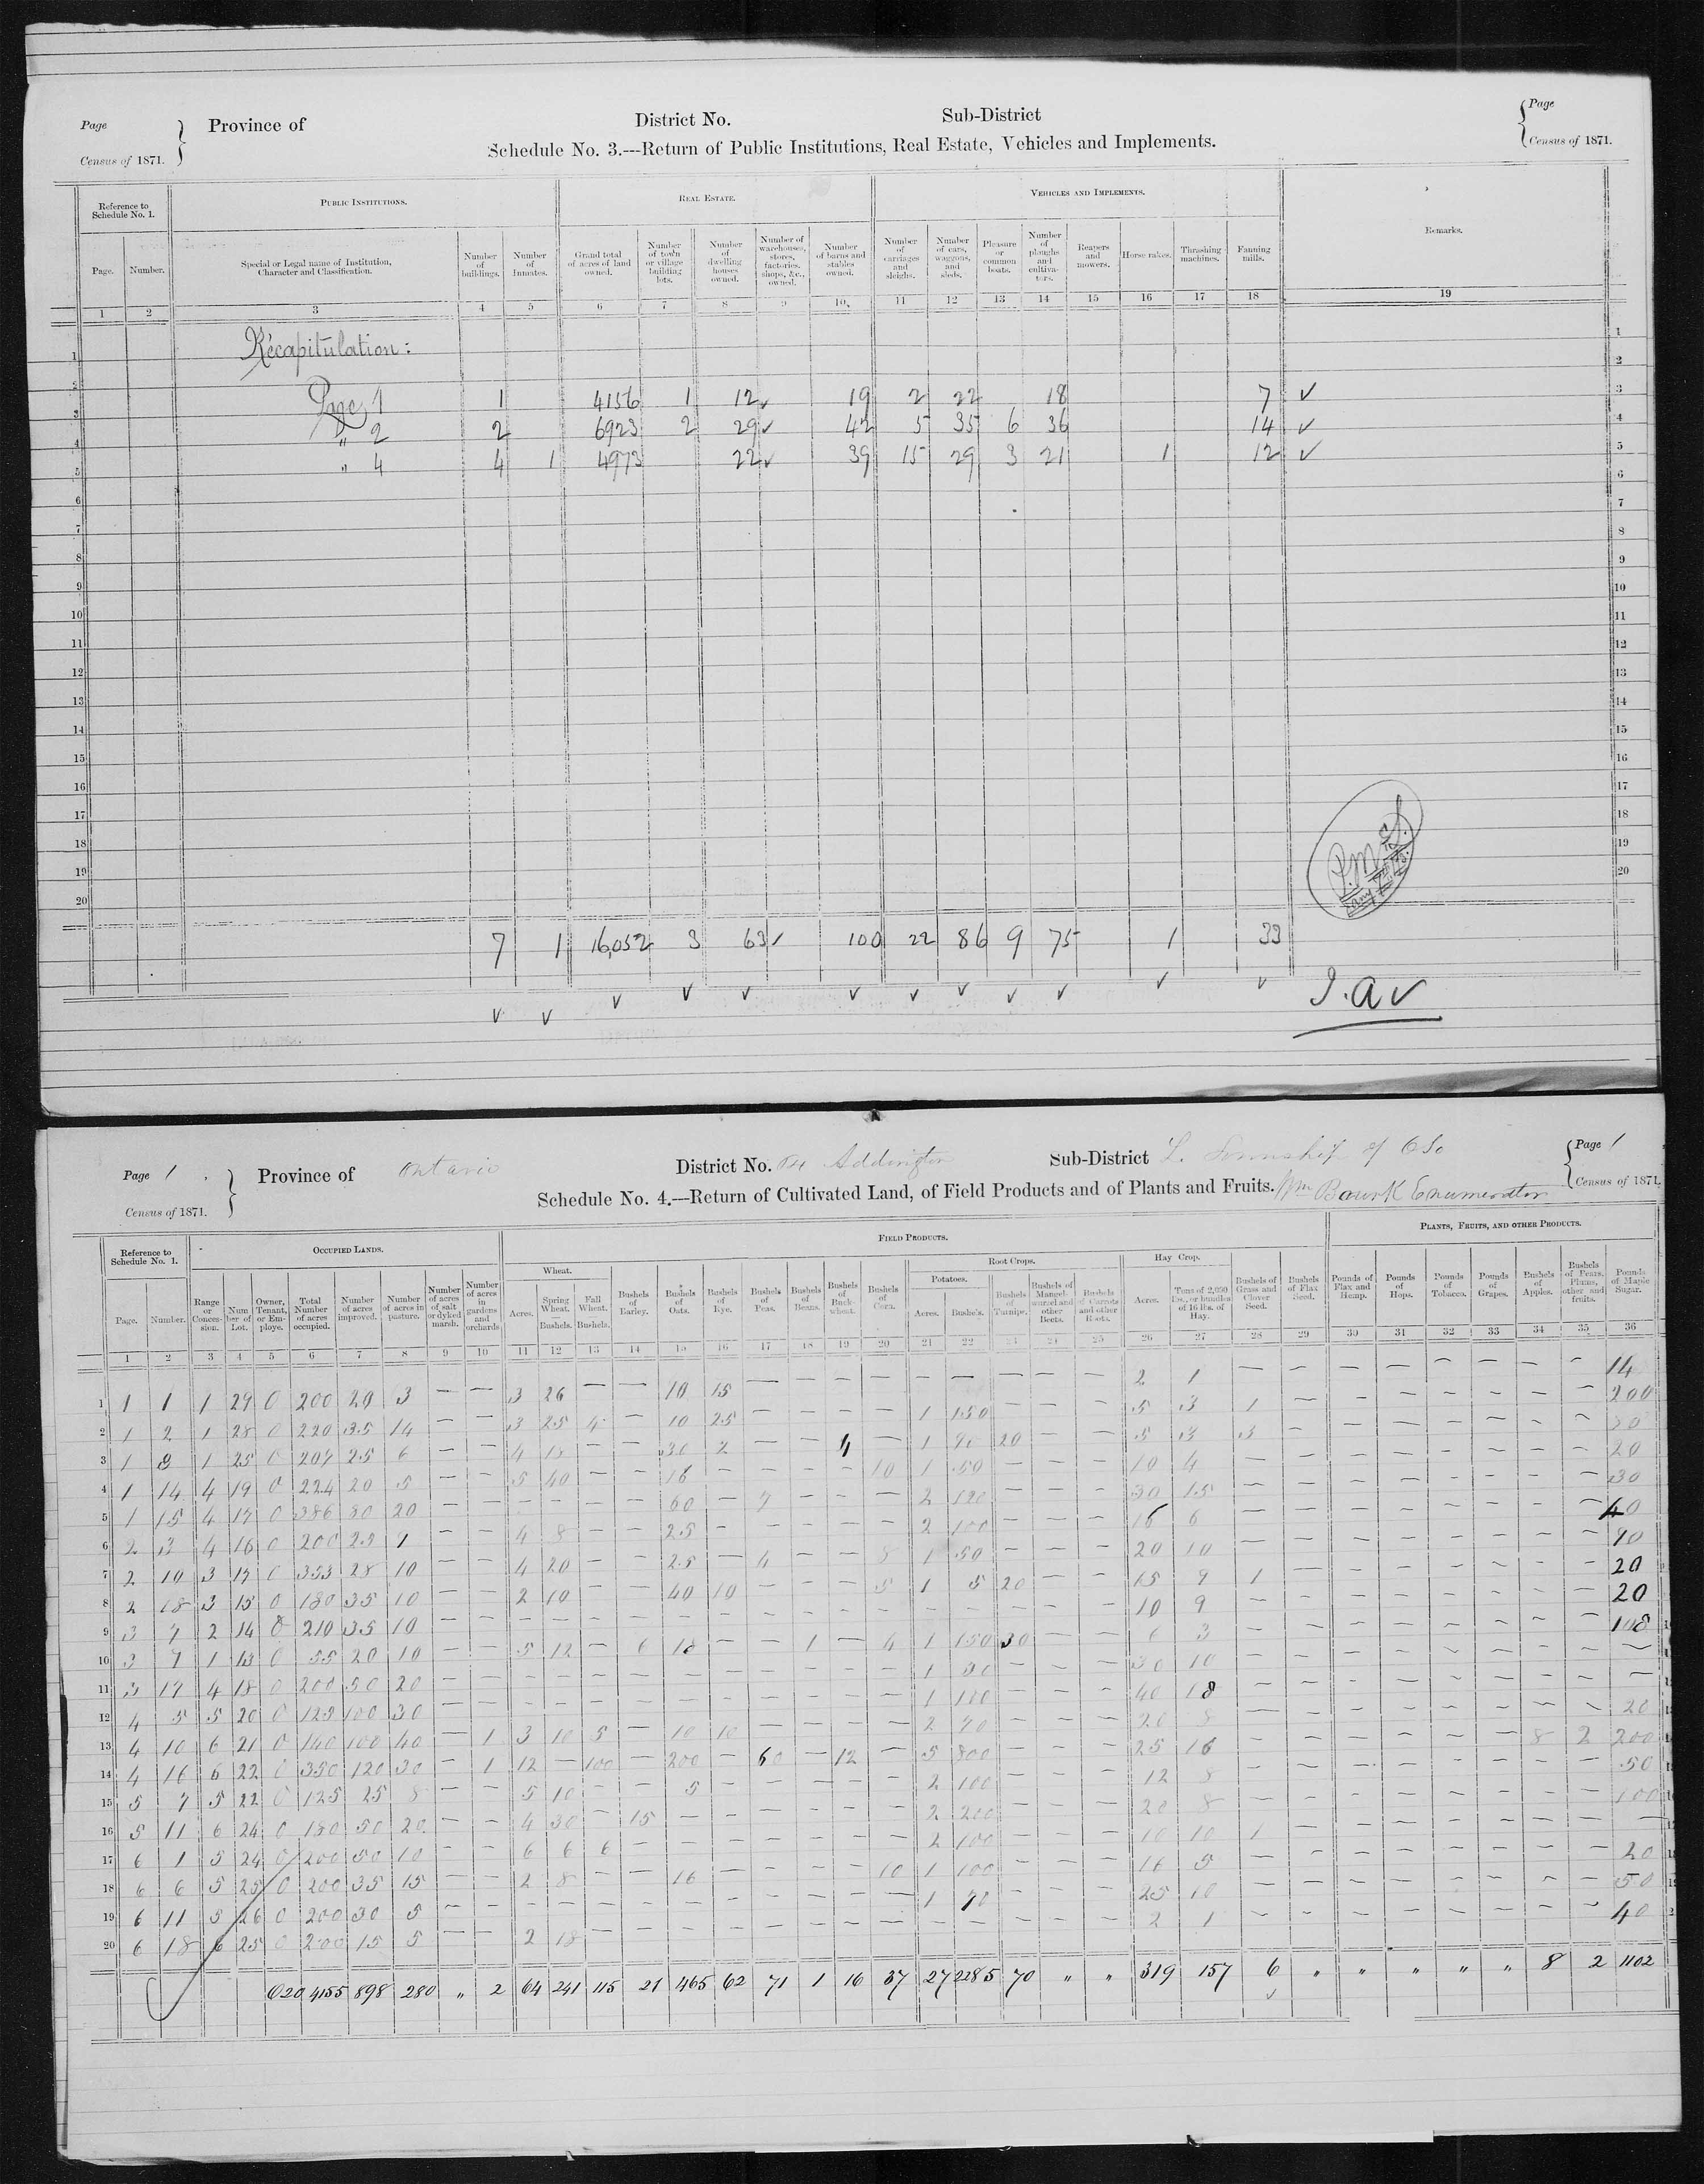 Page
Census of 1871.
Province of
District No.
Sub-District
Page
Census of 1871.
Schedule No. 3.---Return of Public Institutions, Real Estate, Vehicles and Implements.
Reference to Schedule No. 1.
PUBLIC INSTITUTIONS.
REAL ESTATE.
VEHICLES AND IMPLEMENTS.
Remarks.
Page. Number. Special or Legal name of Institution, Character and Classification. Number of buildings. Number of Inmates. Grand total of acres of land owned. Number of town or village building lots. Number of dwelling houses owned. Number of warehouses, stores, factories, shops, &c., owned. Number of barns and stables owned. Number of carriages and sleighs. Number of cars, waggons, and sleds. Pleasure or common boats. Number of ploughs and cultivators. Reapers and mowers. Horse rakes. Thrashing machines. Fanning mills.
1 2 3 4 5 6 7 8 9 10 11 12 13 14 15 16 17 18 19
Récapitulation:
Page 1 1 4156 1 12 ✓ 19 2 22 18 7 ✓
" 2 2 6923 2 29 ✓ 42 5 35 6 36 14 ✓
" 4 4 1 4973 22 ✓ 39 15 29 3 21 1 12 ✓
7 1 16,052 3 63 ✓ 100 22 86 9 75 1 33
J.A ✓
Page 1
Census of 1871.
Province of Ontario
District No. Addington
Sub-District L. Township of Oso
Page 1
Census of 1871.
Schedule No. 4.---Return of Cultivated Land, of Field Products and of Plants and Fruits. Wm Bourk Enumerator
Reference to Schedule No. 1.
OCCUPIED LANDS.
FIELD PRODUCTS.
PLANTS, FRUITS, AND OTHER PRODUCTS.
Wheat.
Root Crops.
Potatoes.
Hay Crop.
Page. Number. Range or Concession. Number of Lot. Owner, Tenant, or Employe. Total Number of acres occupied. Number of acres improved. Number of acres in pasture. Number of acres of salt or dyked marsh. Number of acres in gardens and orchards. Acres. Spring Wheat. Bushels. Fall Wheat. Bushels. Bushels of Barley. Bushels of Oats. Bushels of Rye. Bushels of Peas. Bushels of Beans. Bushels of Buckwheat. Bushels of Corn. Acres. Bushels. Bushels of Turnips. Bushels of Mangel wurzel and other Beets. Bushels of Carrots and other Roots. Acres. Tons of 2,000 lbs., or bundles of 16 lbs. of Hay. Bushels of Grass and Clover Seed. Bushels of Flax Seed. Pounds of Flax and Hemp. Pounds of Hops. Pounds of Tobacco. Pounds of Grapes. Bushels of Apples. Bushels of Pears, Plums, other and fruits. Pounds of Maple Sugar.
1 2 3 4 5 6 7 8 9 10 11 12 13 14 15 16 17 18 19 20 21 22 23 24 25 26 27 28 29 30 31 32 33 34 35 36
1 1 1 1 29 0 200 20 3 — — 3 26 — — 10 15 — — — — — — — — — 2 1 — — — — — — — — 14
2 1 2 1 28 0 220 35 14 — — 3 25 4 — 10 25 — — — — 1 150 — — — 5 3 1 — — — — — — — 200
3 1 8 1 25 0 207 25 6 — — 4 18 — — 30 2 — — 4 — 1 90 20 — — 5 3 3 — — — — — — — 30
4 1 14 4 19 0 224 20 5 — — 5 40 — — 16 — — — — 10 1 50 — — — 10 4 — — — — — — — — 20
5 1 15 4 17 0 386 80 20 — — — — — — 60 — 7 — — — 2 120 — — — 30 15 — — — — — — — — 30
6 2 3 4 16 0 200 25 7 — — 4 8 — — 25 — — — — — 2 100 — — — 16 6 — — — — — — — — 40
7 2 10 3 17 0 353 28 10 — — 4 20 — — 25 — 4 — — 8 1 50 — — — 20 10 — — — — — — — — 90
8 2 18 3 15 0 180 35 10 — — 2 10 — — 40 10 — — — 5 1 5 20 — — 15 9 1 — — — — — — — 20
9 3 7 2 14 0 210 35 10 — — — — — — — — — — — — — — — — — 10 9 — — — — — — — — 20
10 3 7 1 13 0 55 20 10 — — 5 12 — 6 18 — — 1 — 4 1 150 30 — — 6 3 — — — — — — — — 108
11 3 17 4 18 0 200 50 20 — — — — — — — — — — — — 1 90 — — — 30 10 — — — — — — — — —
12 4 5 5 20 0 125 100 30 — — — — — — — — — — — — 1 180 — — — 40 18 — — — — — — — — —
13 4 10 6 21 0 140 100 40 — 1 3 10 5 — 10 10 — — — — 2 70 — — — 20 8 — — — — — — — — 20
14 4 16 6 22 0 350 120 30 — 1 12 — 100 — 200 — 60 — 12 — 5 800 — — — 25 16 — — — — — — 8 2 200
15 5 7 5 22 0 125 25 8 — — 5 10 — — 5 — — — — — 2 100 — — — 12 8 — — — — — — — — 50
16 5 11 6 24 0 180 50 20 — — 4 30 — 15 — — — — — — 2 200 — — — 20 8 — — — — — — — — 100
17 6 1 5 24 0 200 50 10 — — 6 6 6 — — — — — — — 2 100 — — — 10 10 1 — — — — — — — —
18 6 6 5 25 0 200 35 15 — — 2 8 — — 16 — — — — 10 1 100 — — — 16 5 — — — — — — — — 20
19 6 11 5 26 0 200 30 5 — — — — — — — — — — — — 1 90 — — — 25 10 — — — — — — — — 50
20 6 18 6 25 0 200 15 5 — — 2 18 — — — — — — — — — — — — — 2 1 — — — — — — — — 40
020 4155 898 280 " 2 64 241 115 21 465 62 71 1 16 37 27 2285 70 " " 319 157 6 " " " " " 8 2 1102